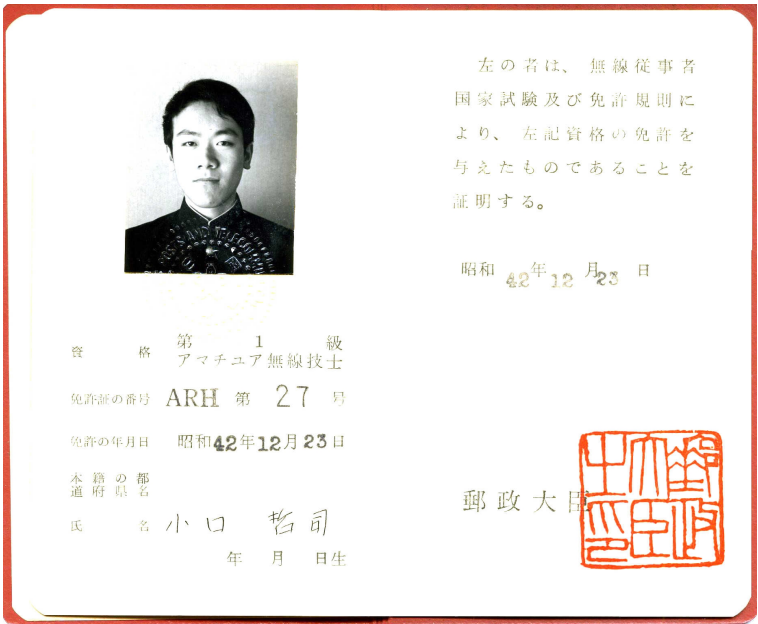 資格 第1級
アマチュア無線技士
免許証の番号 ARH 第 27 号
免許の年月日 昭和42年12月23日
本籍の都
道府県名
氏名 小口 哲司
年 月 日生
左の者は、無線従事者
国家試験及び免許規則に
より、左記資格の免許を
与えたものであることを
証明する。
昭和 42年 12月 23日
郵政大臣
郵政
大臣
之印